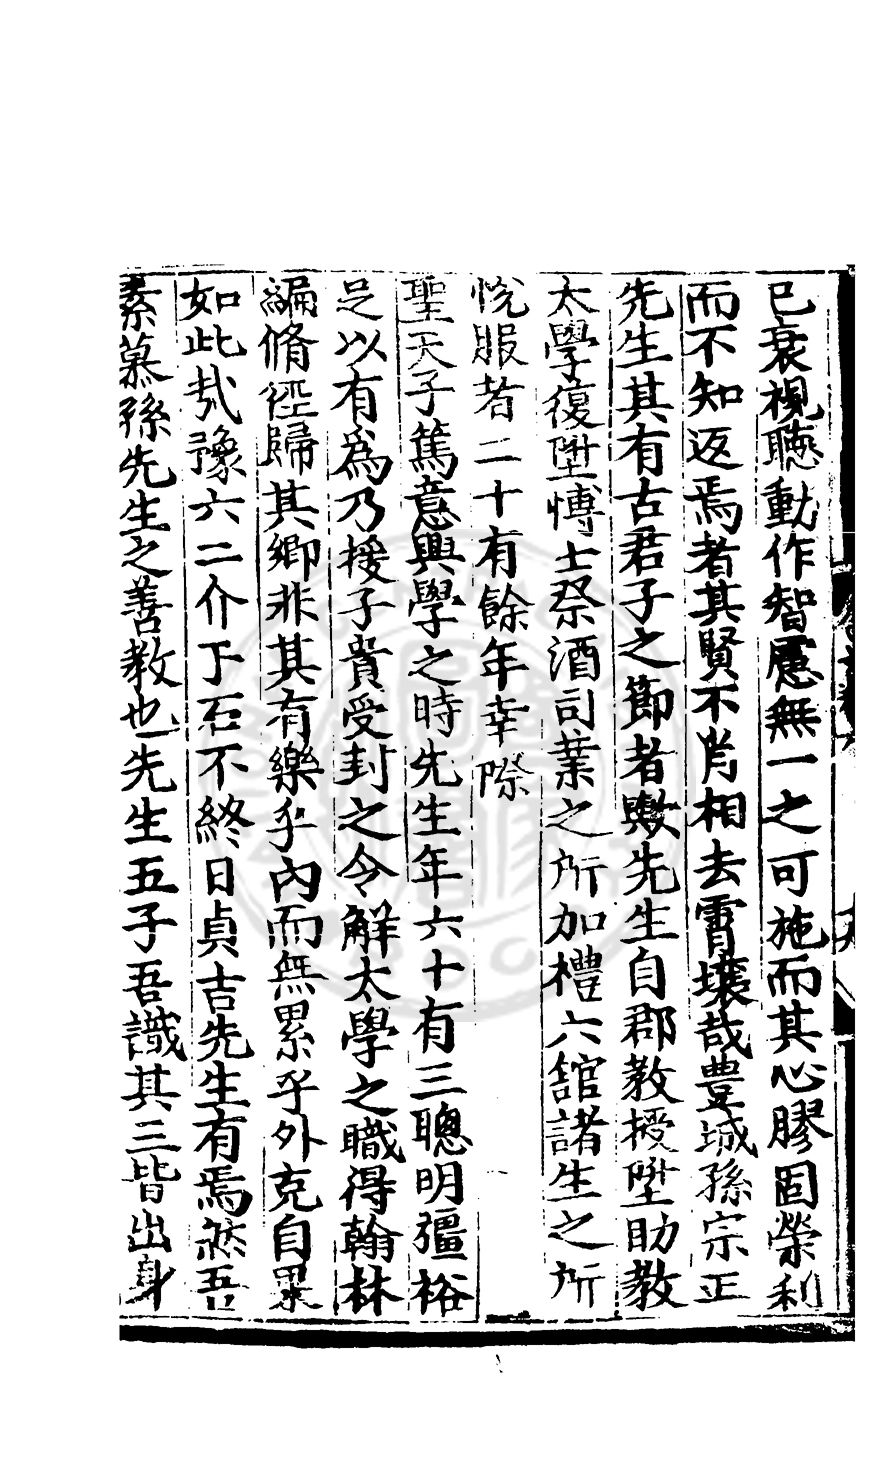 已衰視聽動作智慮無一之可施而其心膠固榮利
而不知返焉者其賢不肖相去霄壤哉豊城孫宗正
先生其有古君子之節者歟先生自郡教授陞助教
太學復陞博士祭酒司業之所加禮六舘諸生之所
悅服者二十有餘年幸際
聖天子篤意興學之時先生年六十有三聰明彊裕
足以有爲乃援子貴受封之令觧太學之職得翰林
編脩徑歸其鄉非其有樂乎內而無累乎外克自果
如此㢤豫六二介于石不終日貞吉先生有焉然吾
素慕孫先生之善教也先生五子吾識其三皆出身